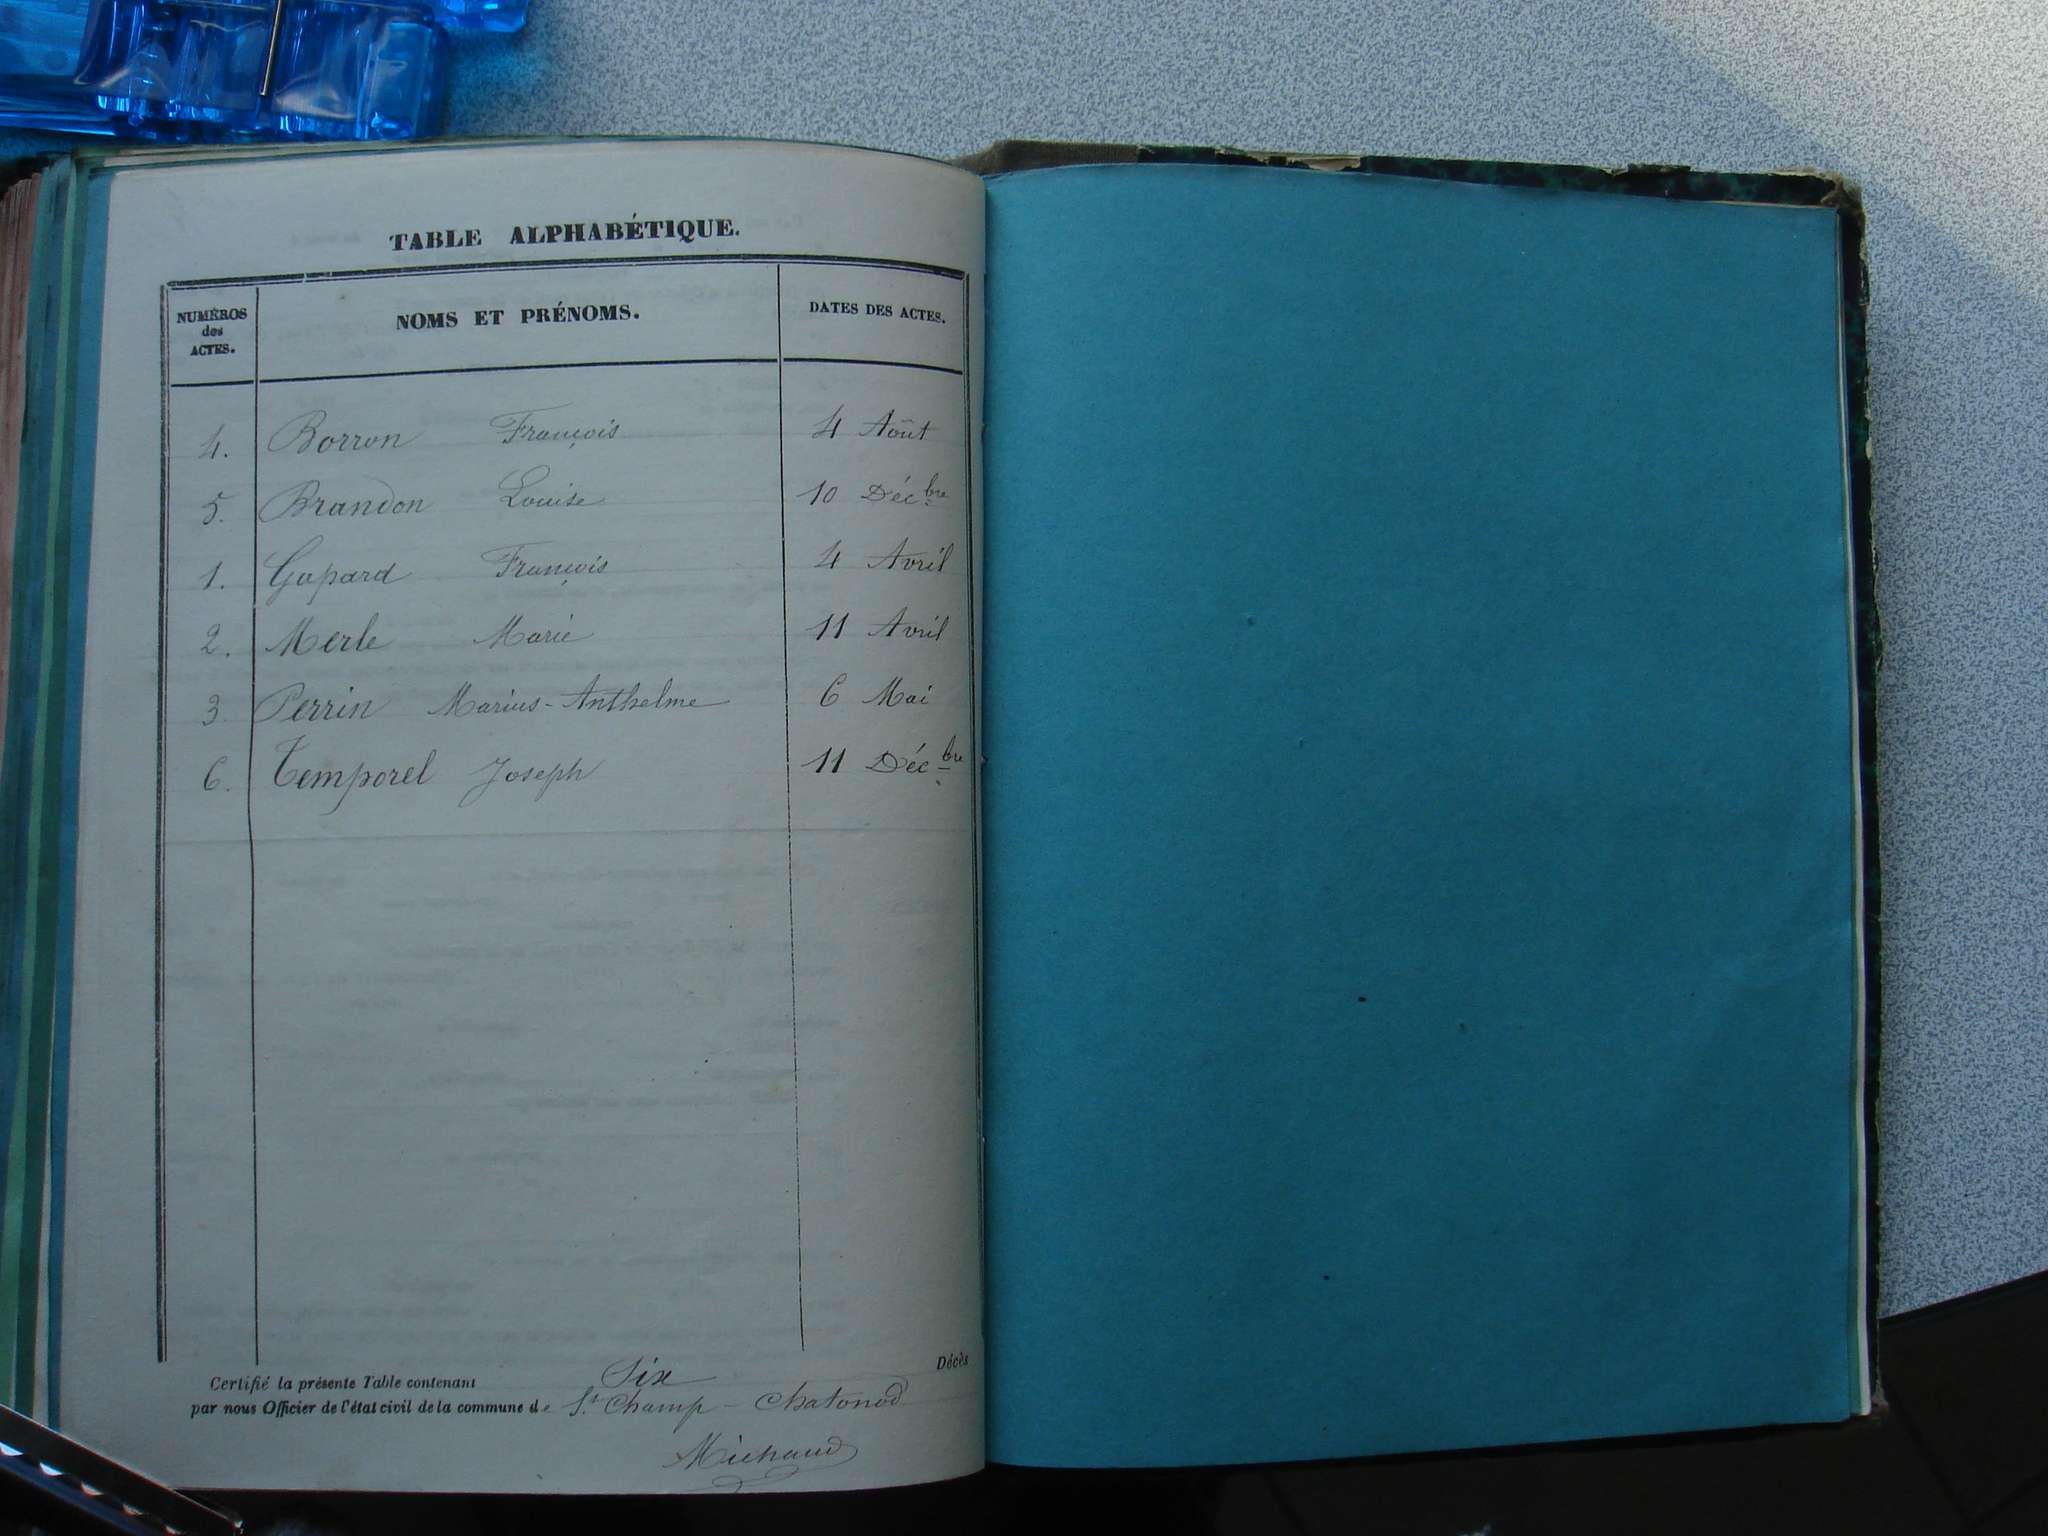 TABLE ALPHABÉTIQUE.
NUMÉROS des ACTES. NOMS ET PRÉNOMS. DATES DES ACTES.
4. Borron François 4 Août
5. Brandon Louise 10 Décbre
1. François 4 Avril
2. Merle Marie 11 Avril
3. Perrin Marius-Anthelme 6 Mai
6. Temporel Joseph 11 Décbre
Certifié la présente Table contenant Six Décès
par nous Officier de l'état civil de la commune de St Champ - Chatonod
Michaud